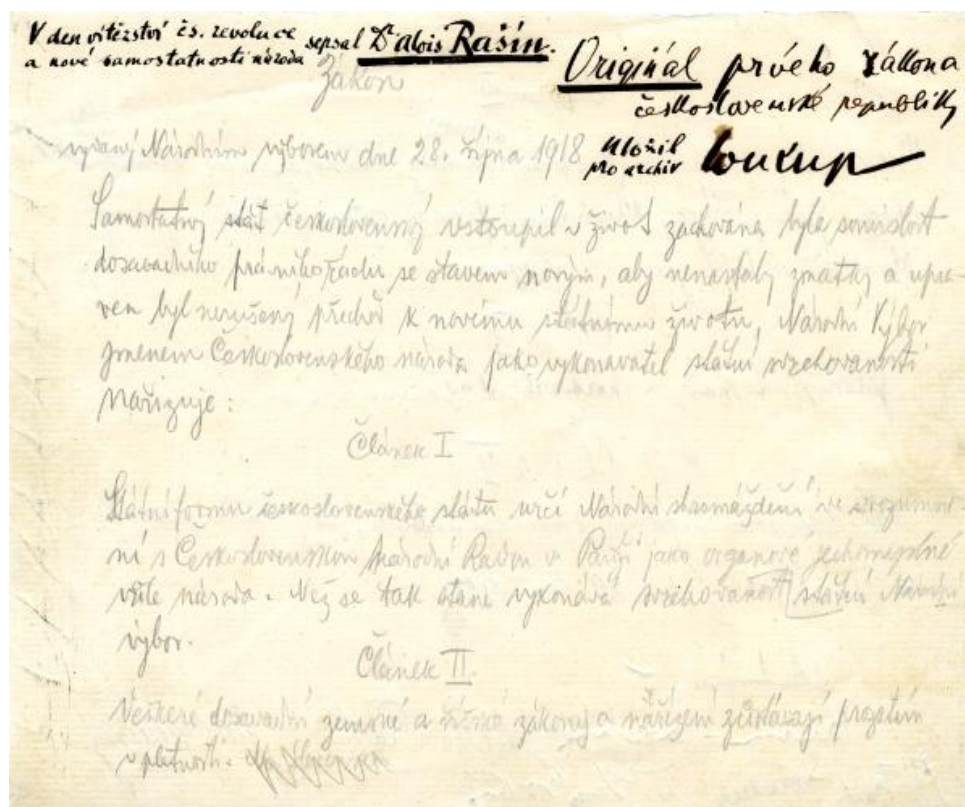 V den vítězství čs. revoluce
a nové samostatnosti národa
sepsal Dr Alois Rašín.
Originál prvého zákona
československé republiky
uložil
pro archiv Soukup
Zákon
vydaný Národním výborem dne 28. října 1918
Samostatný stát československý vstoupil v život zachována byla souvislost
dosavadního právního řádu se stavem novým, aby nenastaly zmatky a upra-
ven byl nerušený přechod k novému státnímu životu, Národní Výbor
jmenem Československého národa jako vykonavatel státní svrchovanosti
nařizuje:
Článek I
Státní formu československého státu určí Národní shromáždění ve srozumně-
ní s Československou Národní Radou v Paříži jako organové jednomyslné
vůle národa. Než se tak stane vykonává svrchovanost státní Národní
výbor.
Článek II.
Veškeré dosavadní zemské a říšské zákony a nařízení zůstávají prozatím
v platnosti.